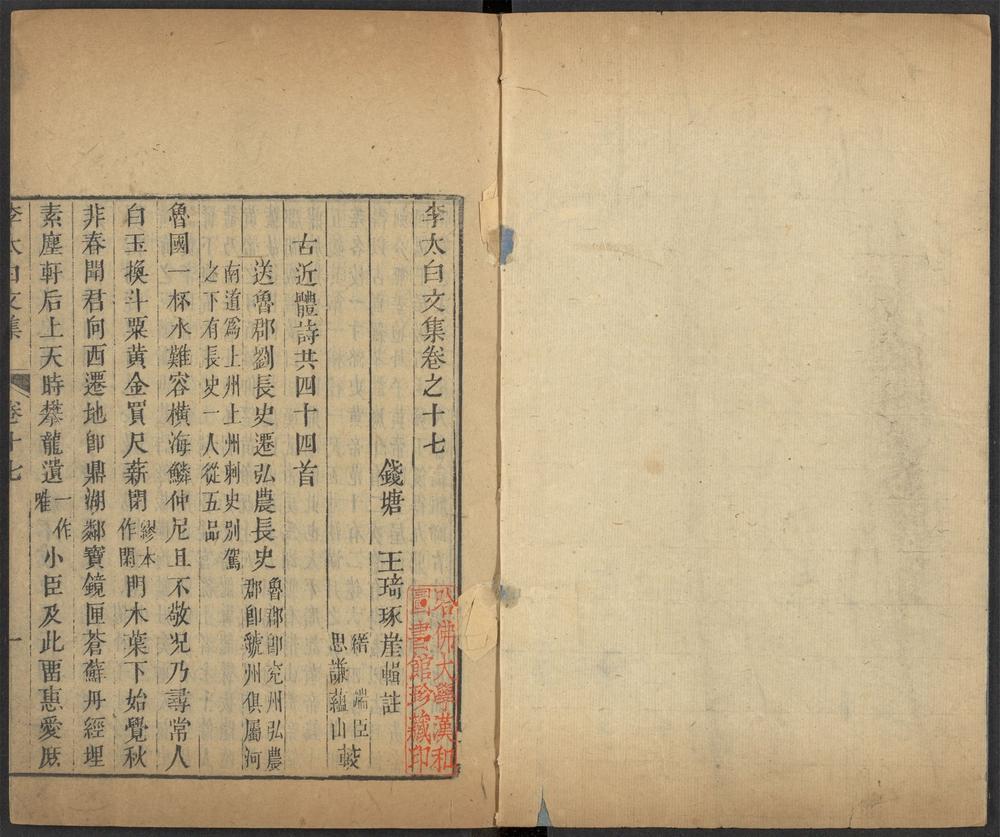 李太白文集卷之十七
錢塘 王琦琢崖輯註
縉 端臣
思謙蘊山 較
古近體詩共四十四首
送魯郡劉長史遷弘農長史 魯郡卽兖州弘農
郡卽虢州俱屬河
南道爲上州上州刺史別駕
之下有長史一人從五品
魯國一杯水難容橫海鱗仲尼且不敬况乃尋常人
白玉換斗粟黄金買尺薪閉 繆本
作閑 門木葉下始覺秋
非春聞君向西遷地卽鼎湖鄰寶鏡匣蒼蘚丹經埋
素塵軒后上天時攀龍遺 一作
唯 小臣及此留惠愛庶
李太白文集 卷十七 一
哈佛大學漢和
圖書館珍藏印